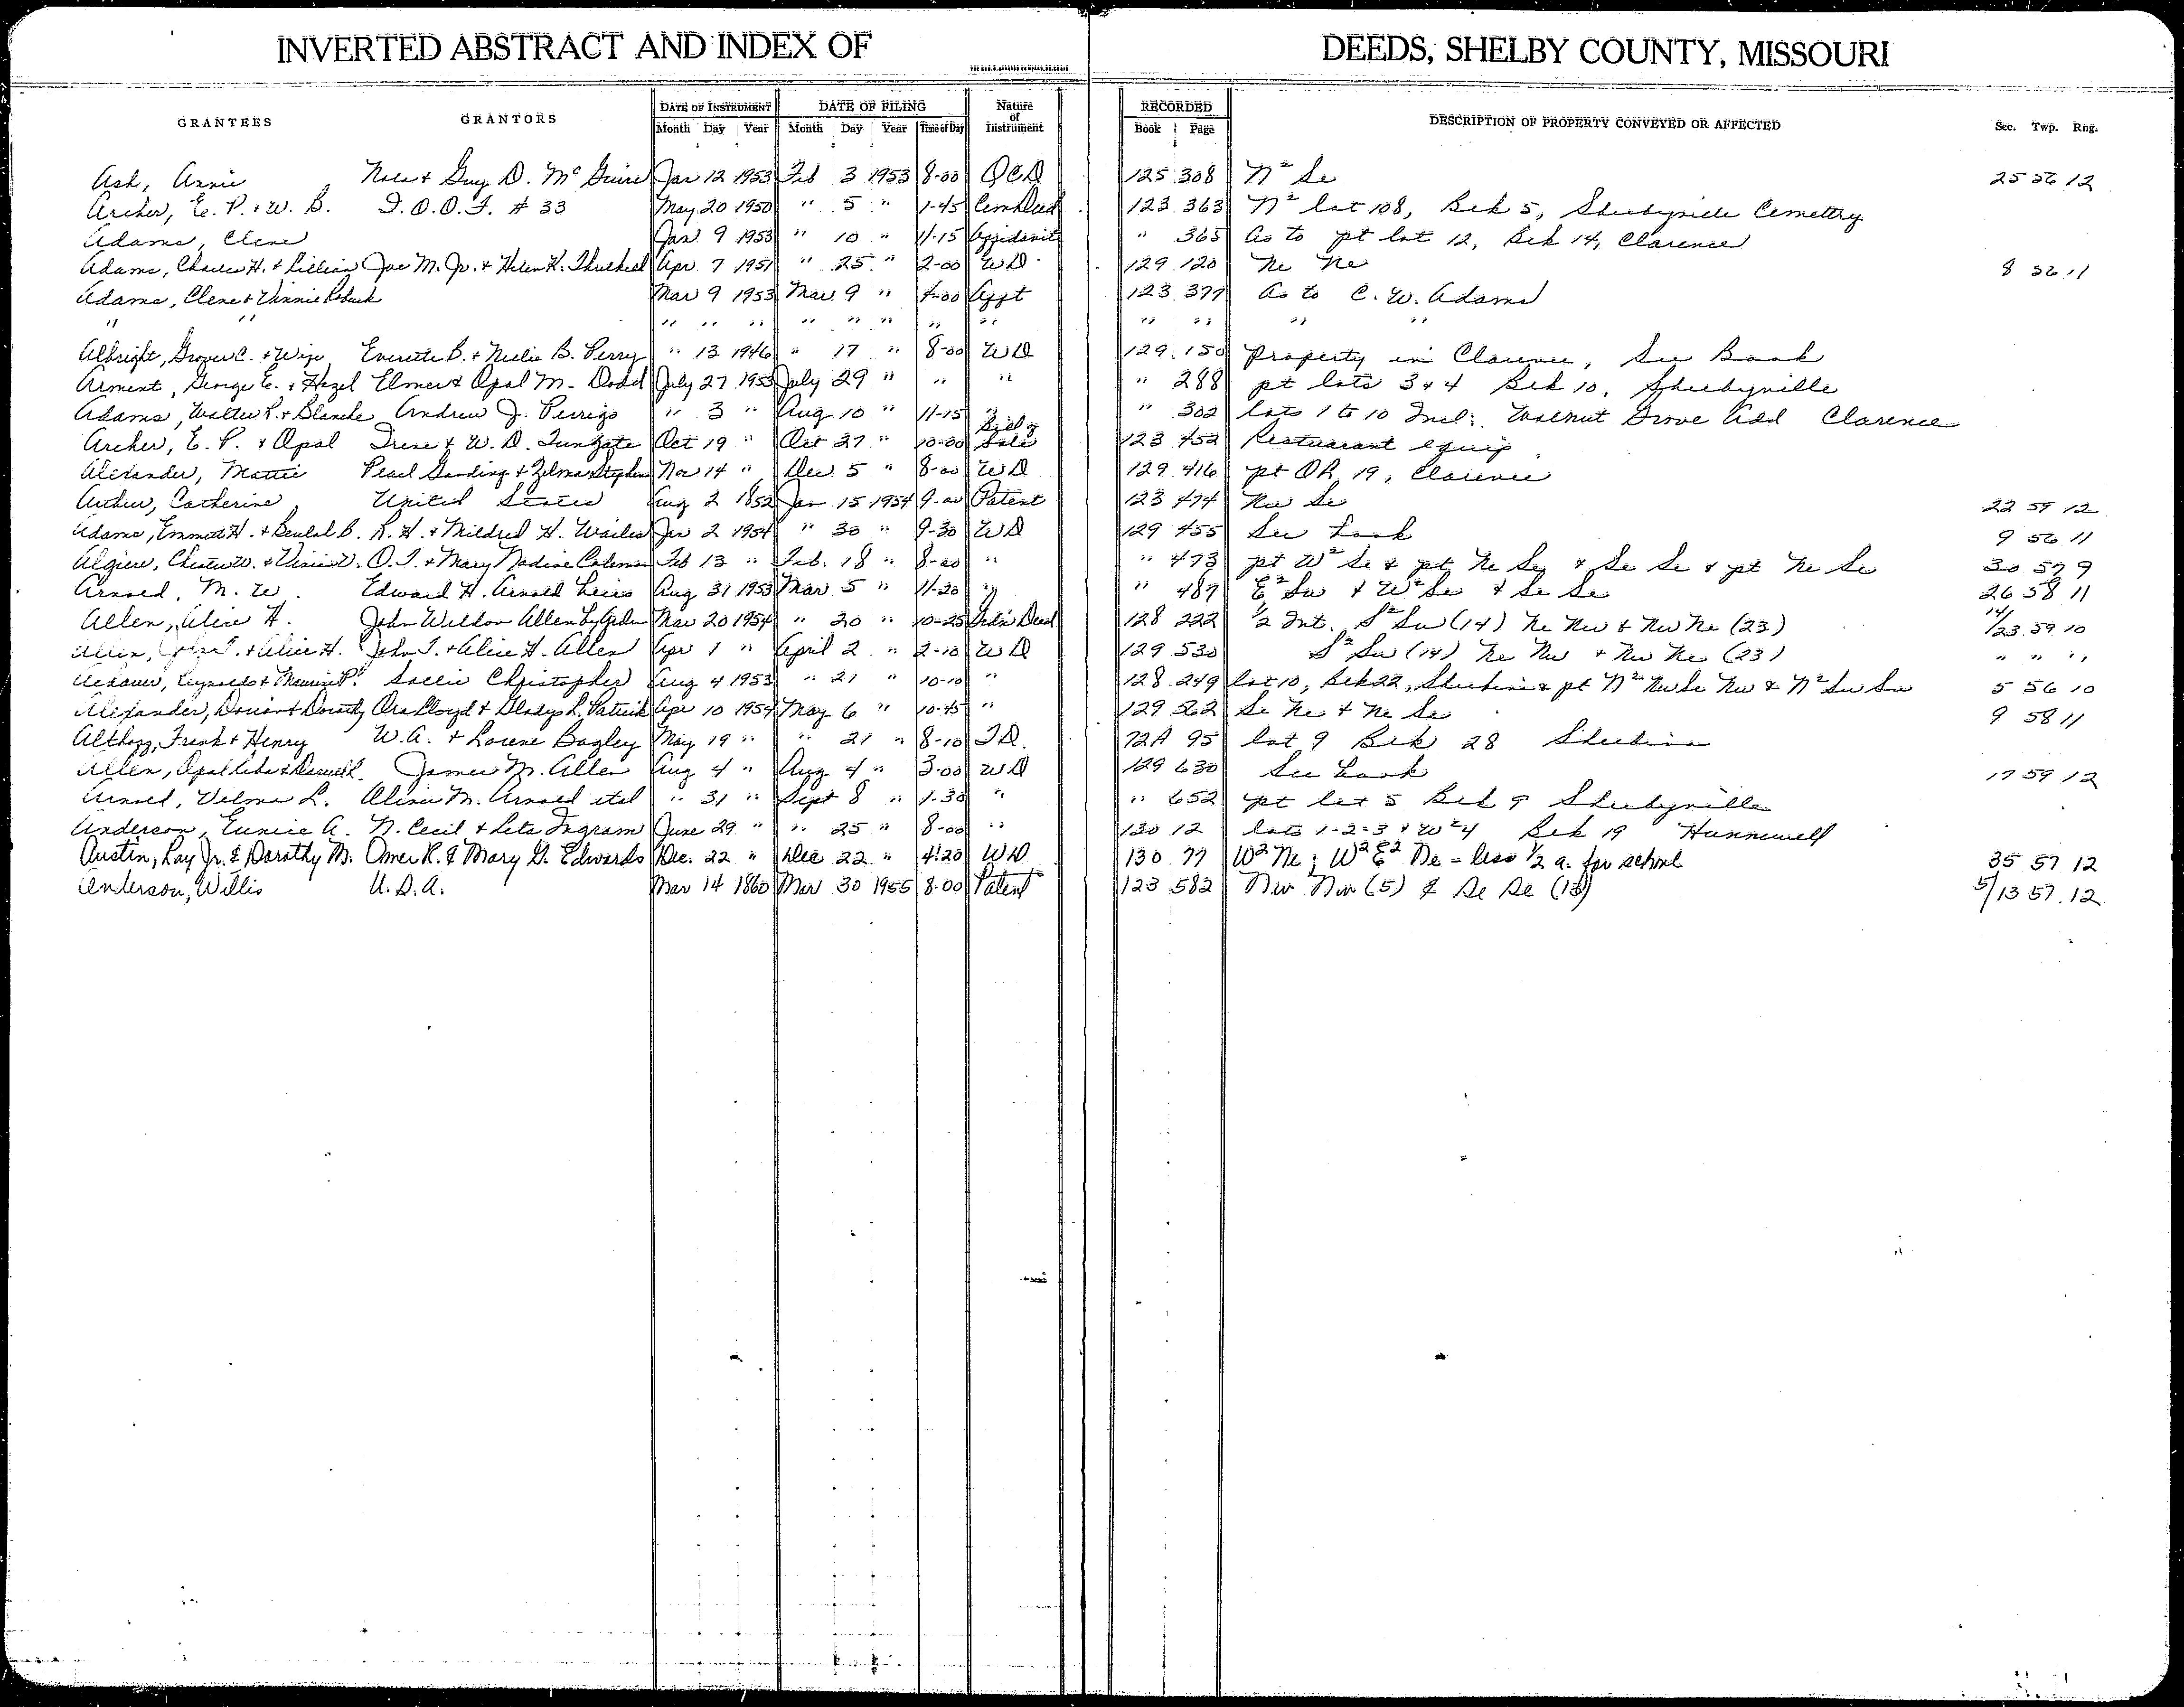 INVERTED ABSTRACT AND INDEX OF DEEDS, SHELBY COUNTY, MISSOURI
GRANTEES GRANTORS DATE OF INSTRUMENT DATE OF FILING Nature of Instrument RECORDED DESCRIPTION OF PROPERTY CONVEYED OR AFFECTED Sec. Twp. Rng.
Month Day Year Month Day Year Time of Day Book Page
Ash, Annie Nola + Guy D. McGuire Jan 12 1953 Feb 3 1953 8-00 QCD 125 308 N² Se 25 56 12
Archer, E. P. + W. B. I.O.O.F. # 33 May 20 1950 " 5 " 1-45 Cem Deed 123 363 N² lot 108, Blk 5, Shelbyville Cemettry
Adams, Clene Jan 9 1953 " 10 " 11-15 Affidavit " 365 As to pt lot 12, Blk 14, Clarence
Adams, Charles H. + Lillian Joe M. Jr. + Helen K. Threlkeld Apr. 7 1951 " 25 " 2-00 WD 129 120 Ne Ne 8 56 11
Adams, Clene + Vinnie Mar 9 1953 Mar. 9 " 4-00 Afft 123 377 As to C. W. Adams
" " " " " " " " " " " " " "
Albright, Grover C. + Wife Everette B. + Nellie B. Perry " 13 1946 " 17 " 8-00 WD 129 150 Property in Clarence, See Book
Arment, George E. + Hazel Elmer + Opal M. Dodd July 27 1953 July 29 " " " " 288 pt lots 3 + 4 Blk 10, Shelbyville
Adams, Walter R. + Blanche Andrew J. Perrigo " 3 " Aug 10 " 11-15 " " 302 lots 1 to 10 Incl: Walnut Grove Add Clarence
Archer, E. P. + Opal Irene + W. D. Tungate Oct 19 " Oct 27 " 10-00 Bill of Sale 123 452 Restuarant equip
Alexander, Mattie Pearl Harding + Zelma Stephens Nov 14 " Dec 5 " 8-00 WD 129 416 pt OL 19, Clarence
Arthur, Catherine United States Aug 2 1852 Jan 15 1954 9-00 Patent 123 474 Nw Se 22 59 12
Adams, Emmett H. + Beulah B. R. H. + Mildred H. Wailes Jan 2 1954 " 30 " 9-30 WD 129 455 See book 9 56 11
Algiere, Chester W. + Vivian V. O. T. + Mary Nadine Coleman Feb 13 " Feb. 18 " 8-00 " " 473 pt W² Se & pt Ne Se + Se Se + pt Ne Se 30 57 9
Arnold, M. W. Edward H. Arnold heirs Aug 31 1953 Mar 5 " 11-20 " " 487 E² Sw + W² Se + Se Se 26 58 11
Allen, Alice H. John Weldon Allen by Gdn Mar 20 1954 " 20 " 10-25 Gdn Deed 128 222 ½ Int. S² Sw (14) Ne Nw + Nw Ne (23) 14/23 59 10
Allen, John T. + Alice H. John T. + Alice H. Allen Apr 1 " April 2 " 2-10 WD 129 530 S² Sw (14) Ne Nw + Nw Ne (23) " " "
Reynolds + Maurine P. Sallie Christopher Aug 4 1953 " 21 " 10-10 " 128 249 lot 10, Blk 22, Shelbina + pt N² Nw Se Nw & N² Sw Sw 5 56 10
Alexander, Dorian + Dorothy Ora Lloyd + Gladys L. Patrick Apr 10 1954 May 6 " 10-45 " 129 562 Se Ne + Ne Se 9 58 11
Althoff, Frank + Henry W. A. + Lorene Bagley May 19 " " 21 " 8-10 T.D. 72A 95 lot 9 Blk 28 Shelbina
Allen, Opal Leba + Darwell James M. Allen Aug 4 " Aug 4 " 3-00 WD 129 630 See book 17 59 12
Arnold, Velma L. Oliver M. Arnold etal " 31 " Sept 8 " 1-30 " " 652 pt lot 5 Blk 9 Shelbyville
Anderson, Eunice A. N. Cecil + Leta Ingram June 29 " " 25 " 8-00 " 130 12 lots 1-2-3 + W² 4 Blk 19 Hunnewell
Austin, Ray Jr. & Dorothy M. Omer R. & Mary G. Edwards Dec. 22 " Dec 22 " 4:20 WD 130 77 W² Ne; W² E² Ne - less ½ a. for school 35 57 12
Anderson, Willis U.S.A. Mar 14 1860 Mar 30 1955 8-00 Patent 123 582 Nw Nw (5) & Se Se (13) 5/13 57 12